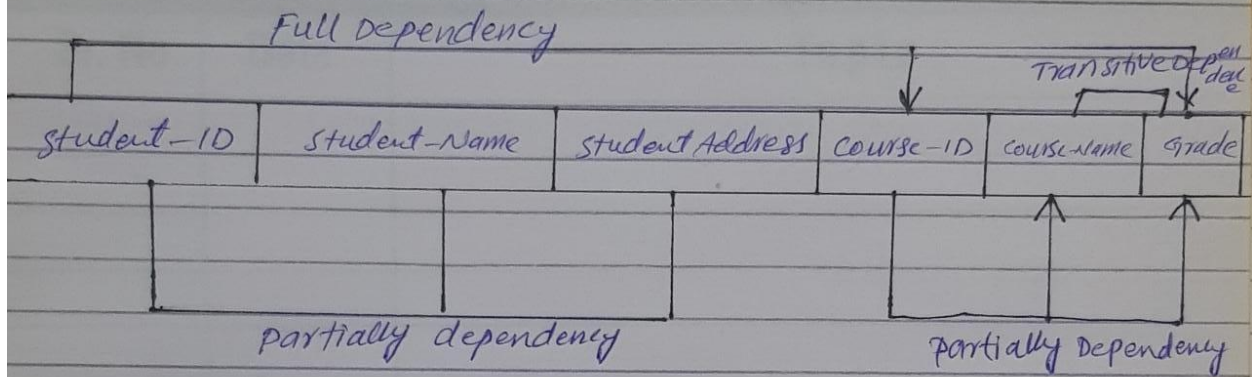 Full Dependency
Transitive Dependence
Student-ID Student-Name Student Address Course-ID Course-Name Grade
Partially dependency
Partially Dependency